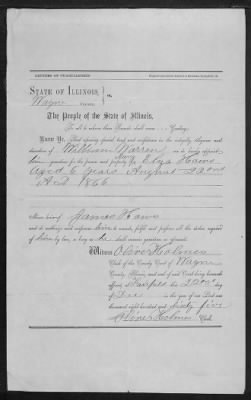 LETTERS OF GUARDIANSHIP.
STATE OF ILLINOIS,
Wayne COUNTY. } ss.
The People of the State of Illinois,
To all to whom these Presents shall come . . . Greeting:
Know Ye, That reposing special trust and confidence in the integrity, diligence and
discretion of William Warren, we do hereby appoint
him guardian for the person and property of Elza Haws
aged 6 years August 22nd
A D 1866
Minor heir of James Haws
and do authorize and empower him to execute, perform and fulfil all the duties required
of him by law, so long as he shall remain guardian as aforesaid.
Witness Oliver Holmes
Clerk of the County Court of Wayne
County, Illinois, and seal of said Court hereunto
affixed, at Fairfield this 22nd day
of Dec in the year of our Lord one
thousand eight hundred and sixty five
Oliver Holmes Clerk